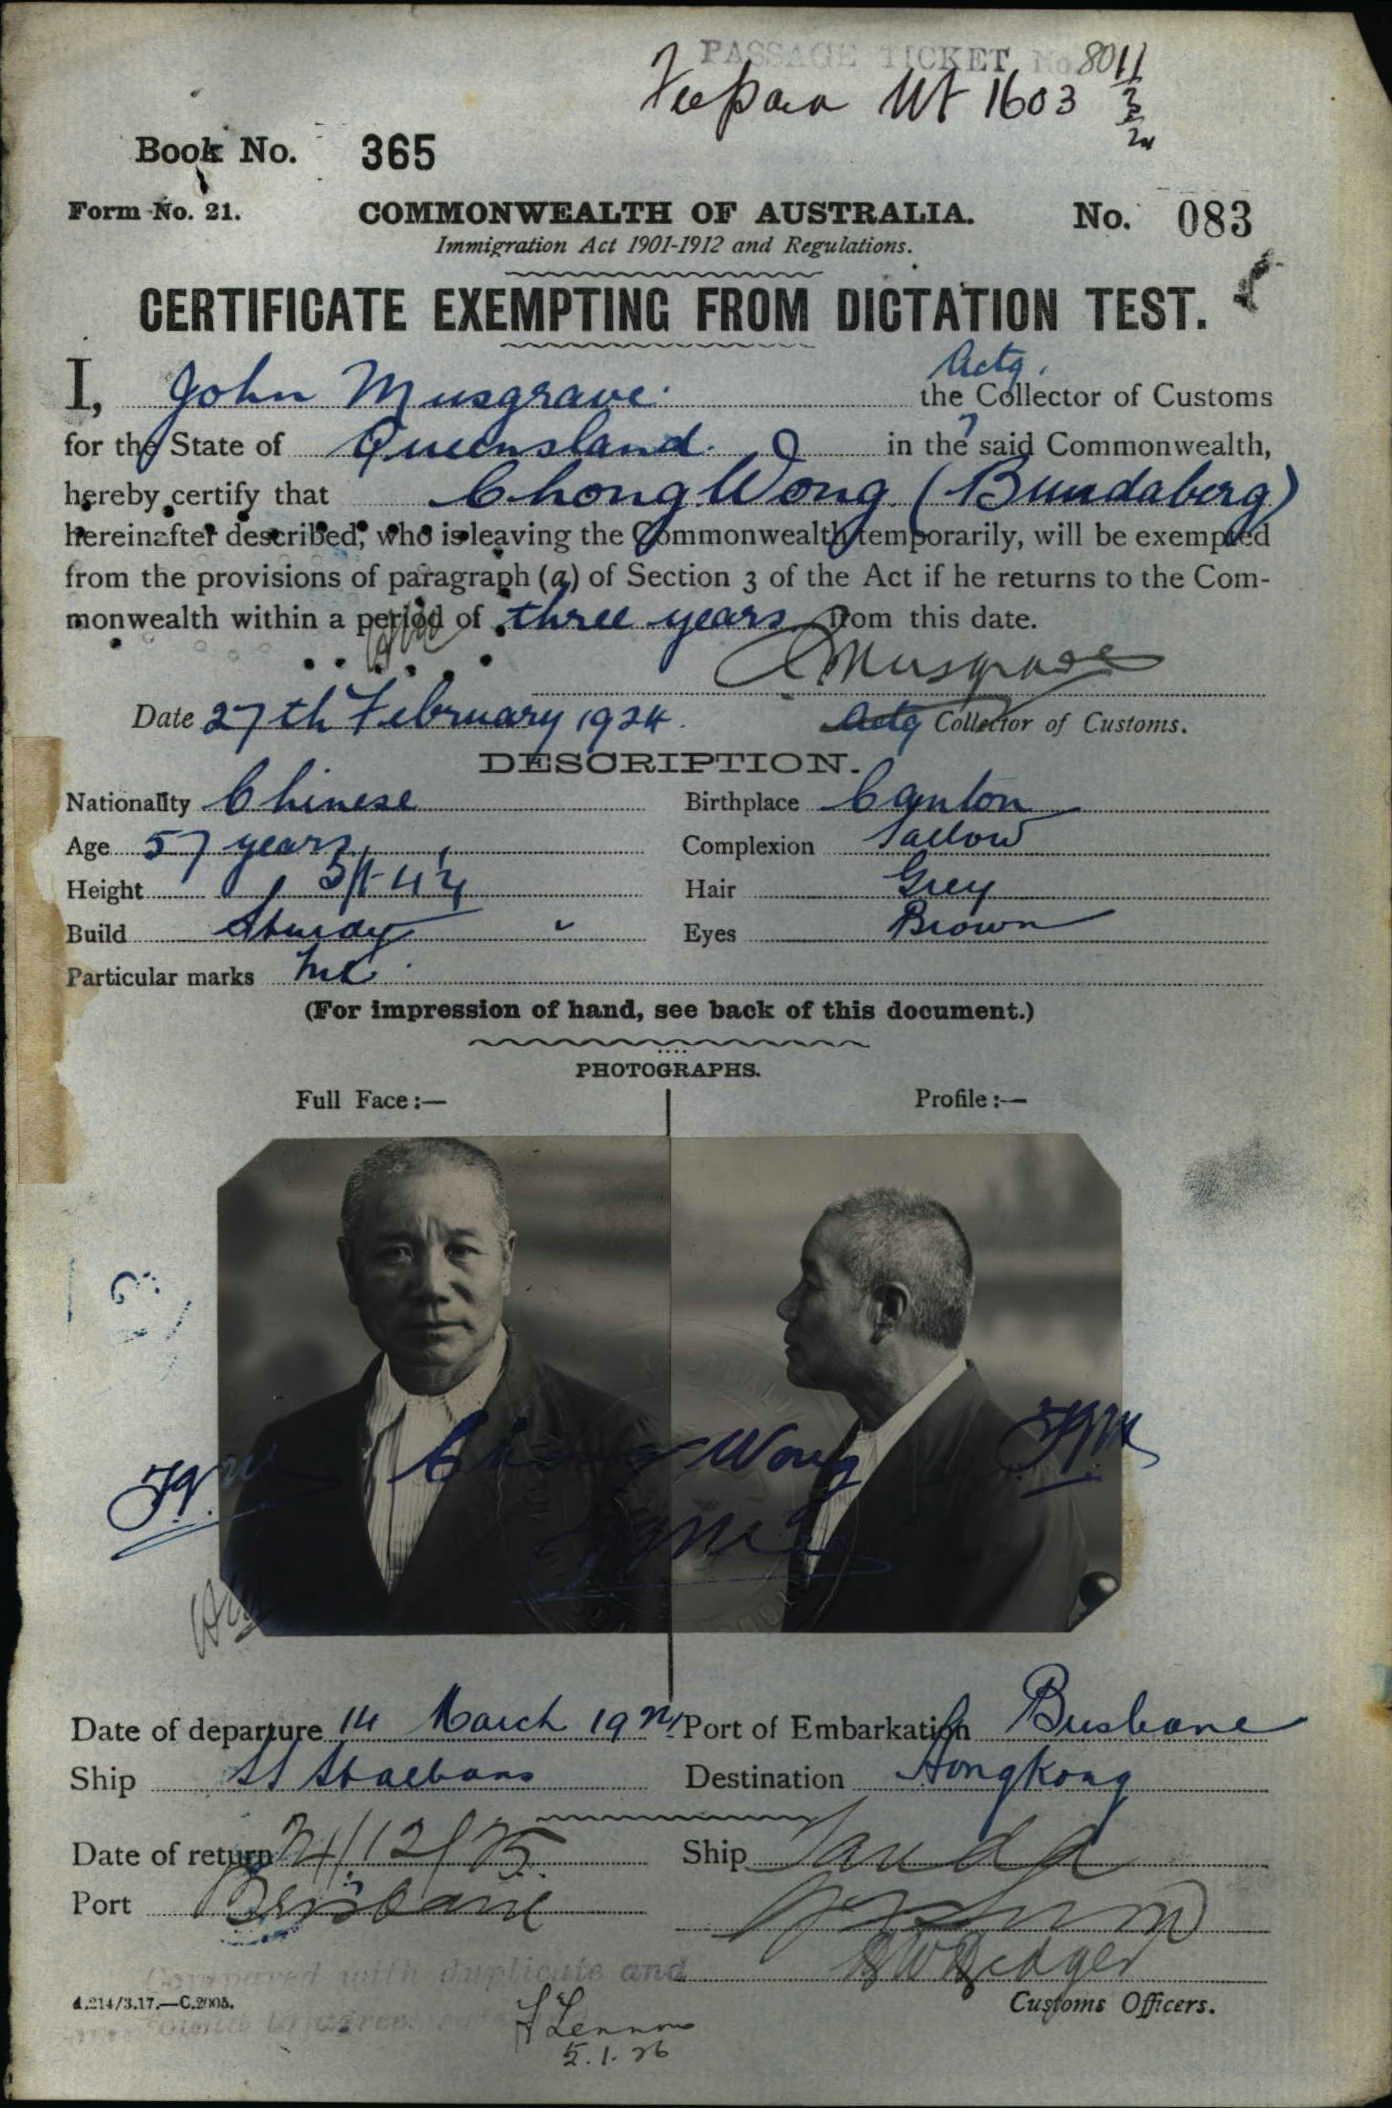 PASSAGE TICKET No 8011
Fee paid Wt 1603
Book No. 365
Form No. 21. COMMONWEALTH OF AUSTRALIA. No. 083
Immigration Act 1901-1912 and Regulations.
CERTIFICATE EXEMPTING FROM DICTATION TEST.
I, John Musgrave Actg. the Collector of Customs
for the State of Queensland in the said Commonwealth,
hereby certify that Chong Wong (Bundaberg)
hereinafter described, who is leaving the Commonwealth temporarily, will be exempted
from the provisions of paragraph (a) of Section 3 of the Act if he returns to the Com-
monwealth within a period of three years from this date.
Musgrave
Date 27th February 1924. Actg Collector of Customs.
DESCRIPTION.
Nationality Chinese Birthplace Canton
Age 57 years Complexion Sallow
Height 5ft 4¼ Hair Grey
Build Sturdy Eyes Brown
Particular marks Nil
(For impression of hand, see back of this document.)
PHOTOGRAPHS.
Full Face:— Profile:—
Chong Wong
Date of departure 14 March 1924 Port of Embarkation Brisbane
Ship St Albans Destination Hongkong
Date of return 24/12/25 Ship Tanda
Port Brisbane
Compared with duplicate and
A.214/3.17.—C.2005. Customs Officers.
F Lennon
5.1.26